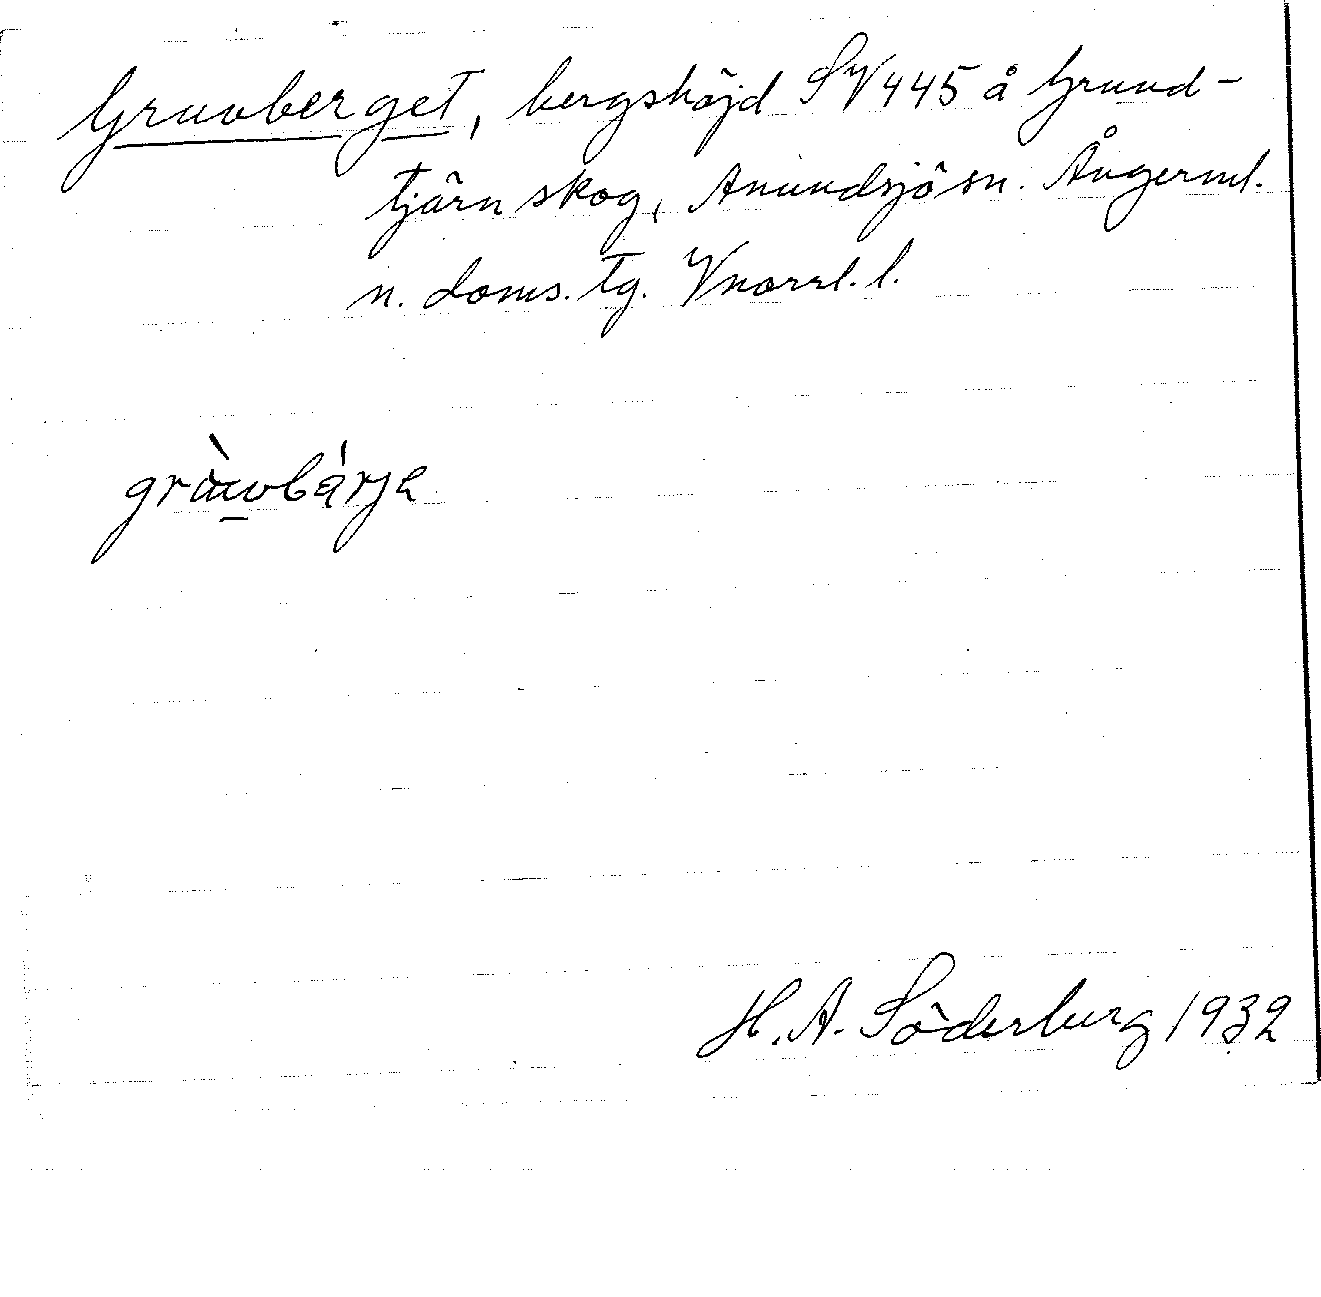 Gruvberget, bergshöjd SV 445 å Grund-
tjärn skog, Anundsjö sn. Ångerml.
n. doms. tg. Vnorrl. l.
H. A. Söderberg 1932